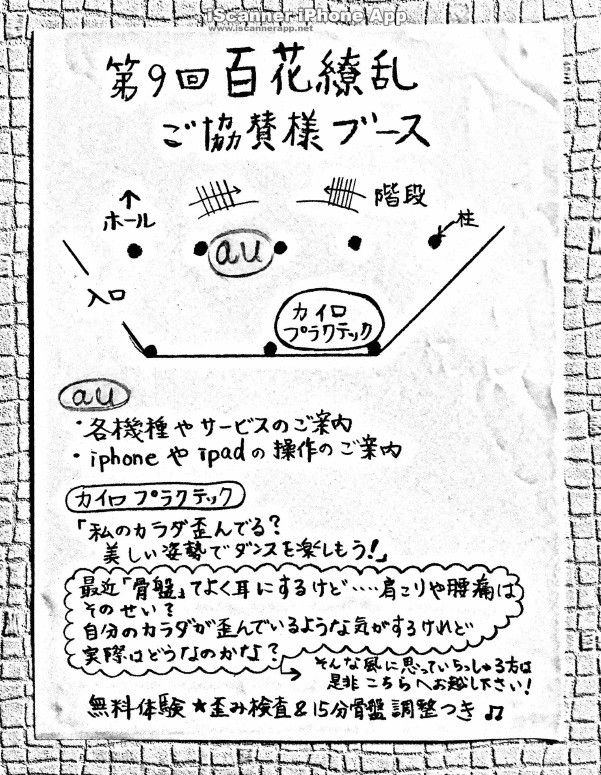 iScanner iPhone App
www.iscannerapp.net
第9回 百花繚乱
ご協賛様ブース
↑
ホール
階段
柱
au
入口
カイロ
プラクテック
au
・各機種やサービスのご案内
・iphoneやipadの操作のご案内
カイロプラクテック
「私のカラダ歪んでる?
美しい姿勢でダンスを楽しもう!」
最近「骨盤」てよく耳にするけど……肩こりや腰痛は
そのせい?
自分のカラダが歪んでいるような気がするけれど
実際はどうなのかな?
→ そんな風に思っていらっしゃる方は
是非こちらへお越し下さい!
無料体験★歪み検査&15分骨盤調整つき♫